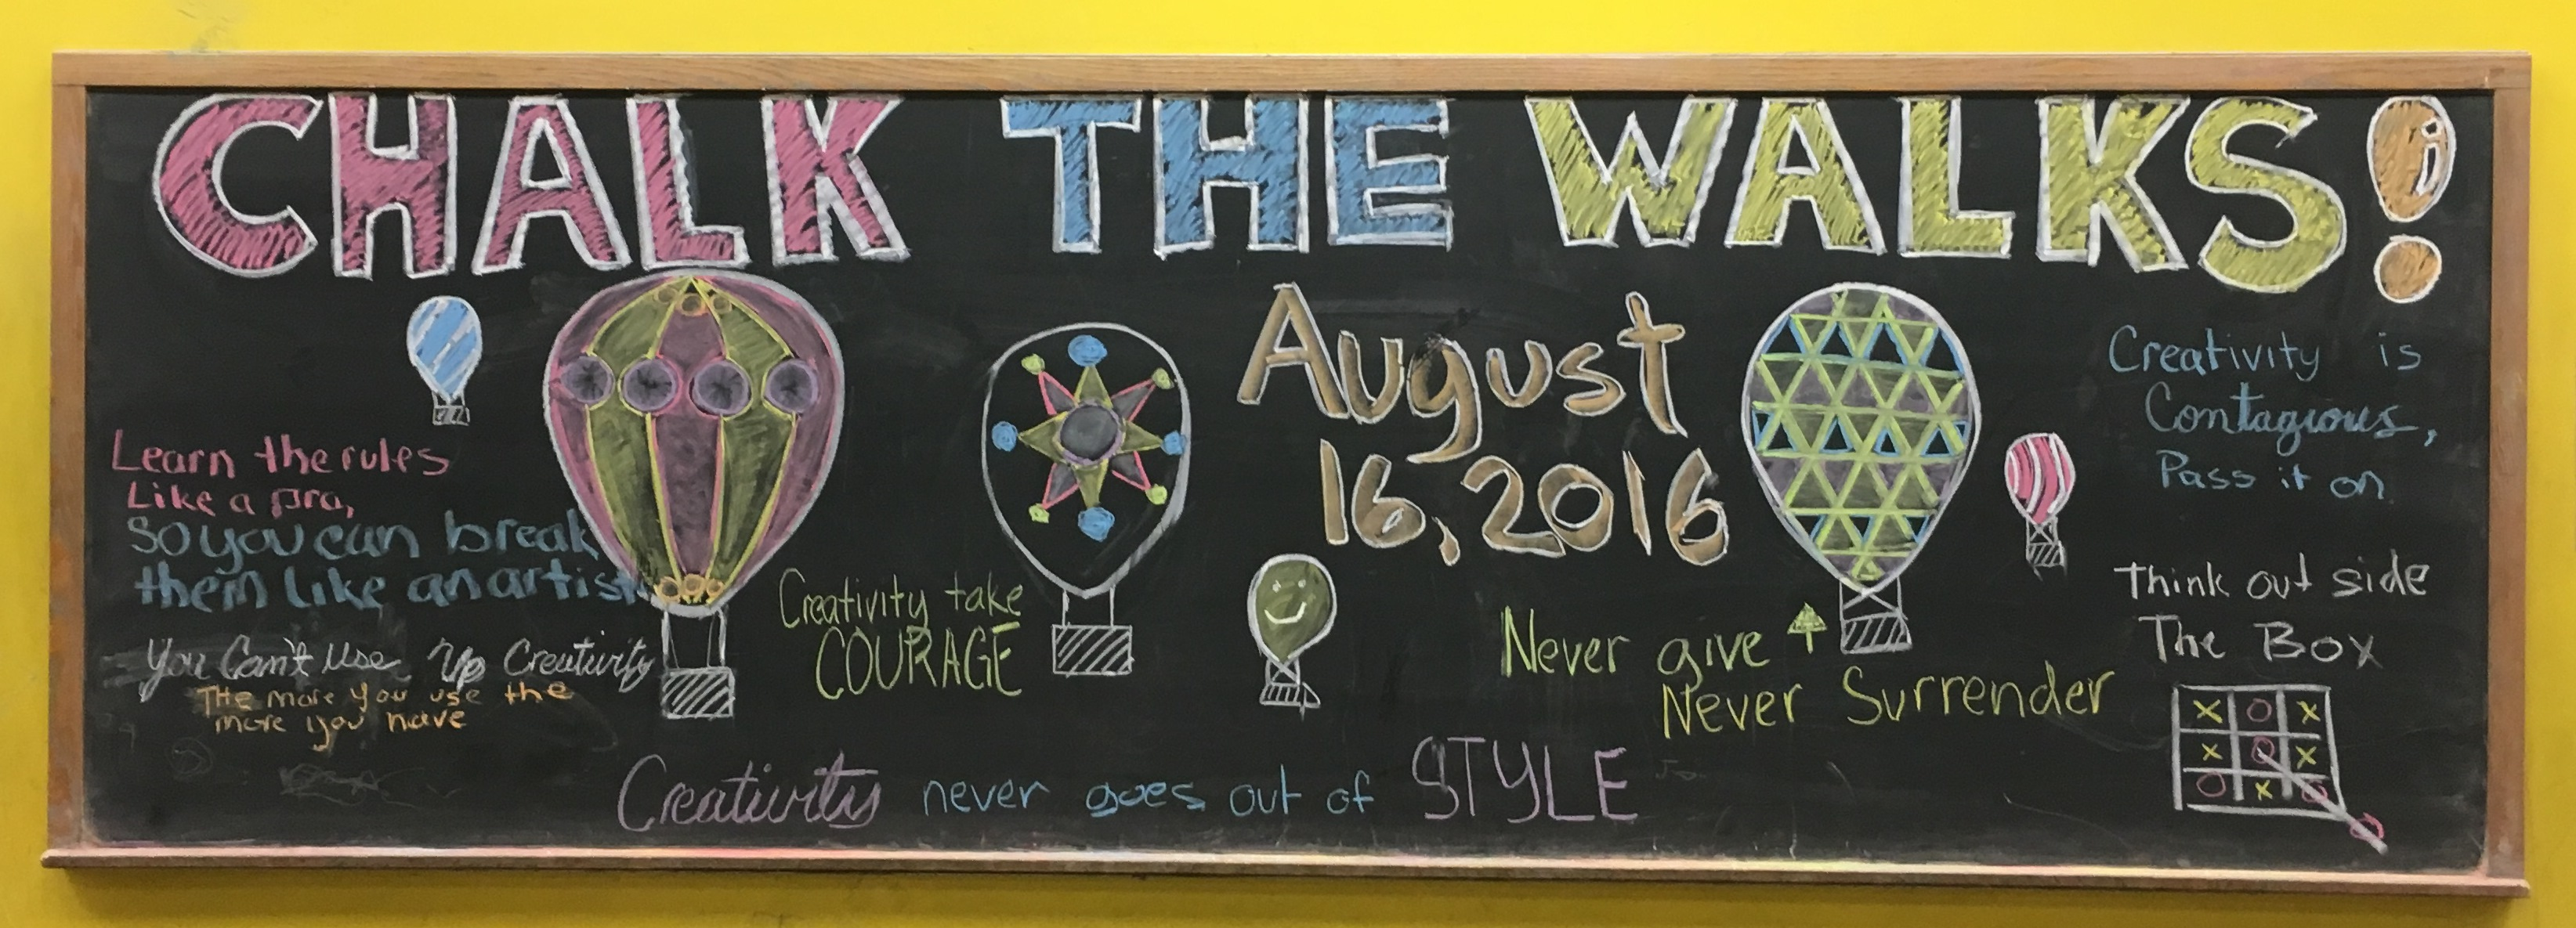 CHALK THE WALKS!
August
16, 2016
Learn the rules
Like a pro,
So you can break
them like an artist
You Can't Use Up Creativity
THe more you use the
more you have
Creativity take
COURAGE
Never give ↑
Never Surrender
Creativity is
Contagious,
Pass it on
Think out side
The Box
X O X
X O X
O X O
Creativity never goes out of STYLE